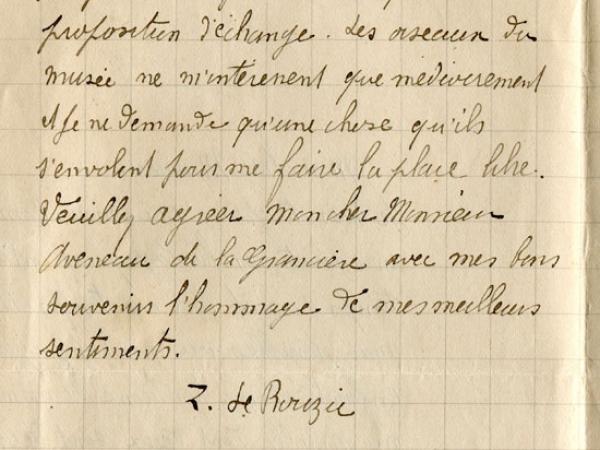 proposition d'échange. Les oiseaux du
musée ne m'intéressent que médiocrement
et je ne demande qu'une chose qu'ils
s'envolent pour me faire la place libre.
Veuillez agréer mon cher Monsieur
Aveneau de la Grancière avec mes bons
souvenirs l'hommage de mes meilleurs
sentiments.
Z. Le Rouzic